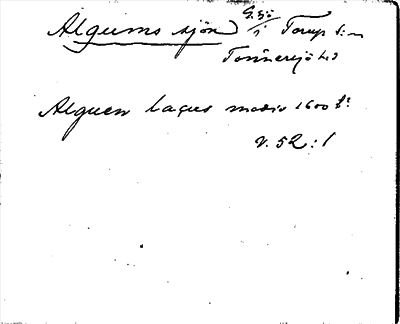 Algums sjön G. sö i Torup s:n
Tönnersjö hd
Alguen lacus medio 1600 t:
V. 52:1